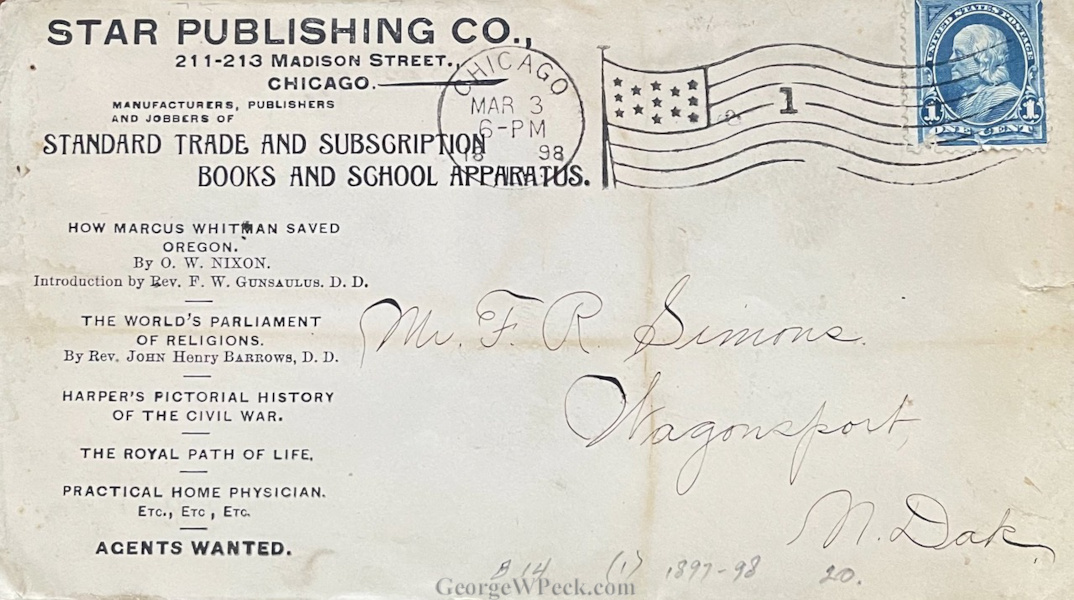 STAR PUBLISHING CO.,
211-213 MADISON STREET.,
CHICAGO.
MANUFACTURERS, PUBLISHERS
AND JOBBERS OF
STANDARD TRADE AND SUBSCRIPTION
BOOKS AND SCHOOL APPARATUS.
CHICAGO
MAR 3
6-PM
18 98
1
UNITED STATES POSTAGE
1 1
ONE CENT
HOW MARCUS WHITMAN SAVED
OREGON.
By O. W. NIXON.
Introduction by Rev. F. W. GUNSAULUS. D. D.
THE WORLD'S PARLIAMENT
OF RELIGIONS.
By Rev. JOHN Henry BARROWS, D. D.
HARPER'S PICTORIAL HISTORY
OF THE CIVIL WAR.
THE ROYAL PATH OF LIFE,
PRACTICAL HOME PHYSICIAN.
ETC., ETC, ETC.
AGENTS WANTED.
Mr. F. R. Simons.
Wagonsport,
N. Dak.
B 14 (1) 1897-98 20.
GeorgeWPeck.com